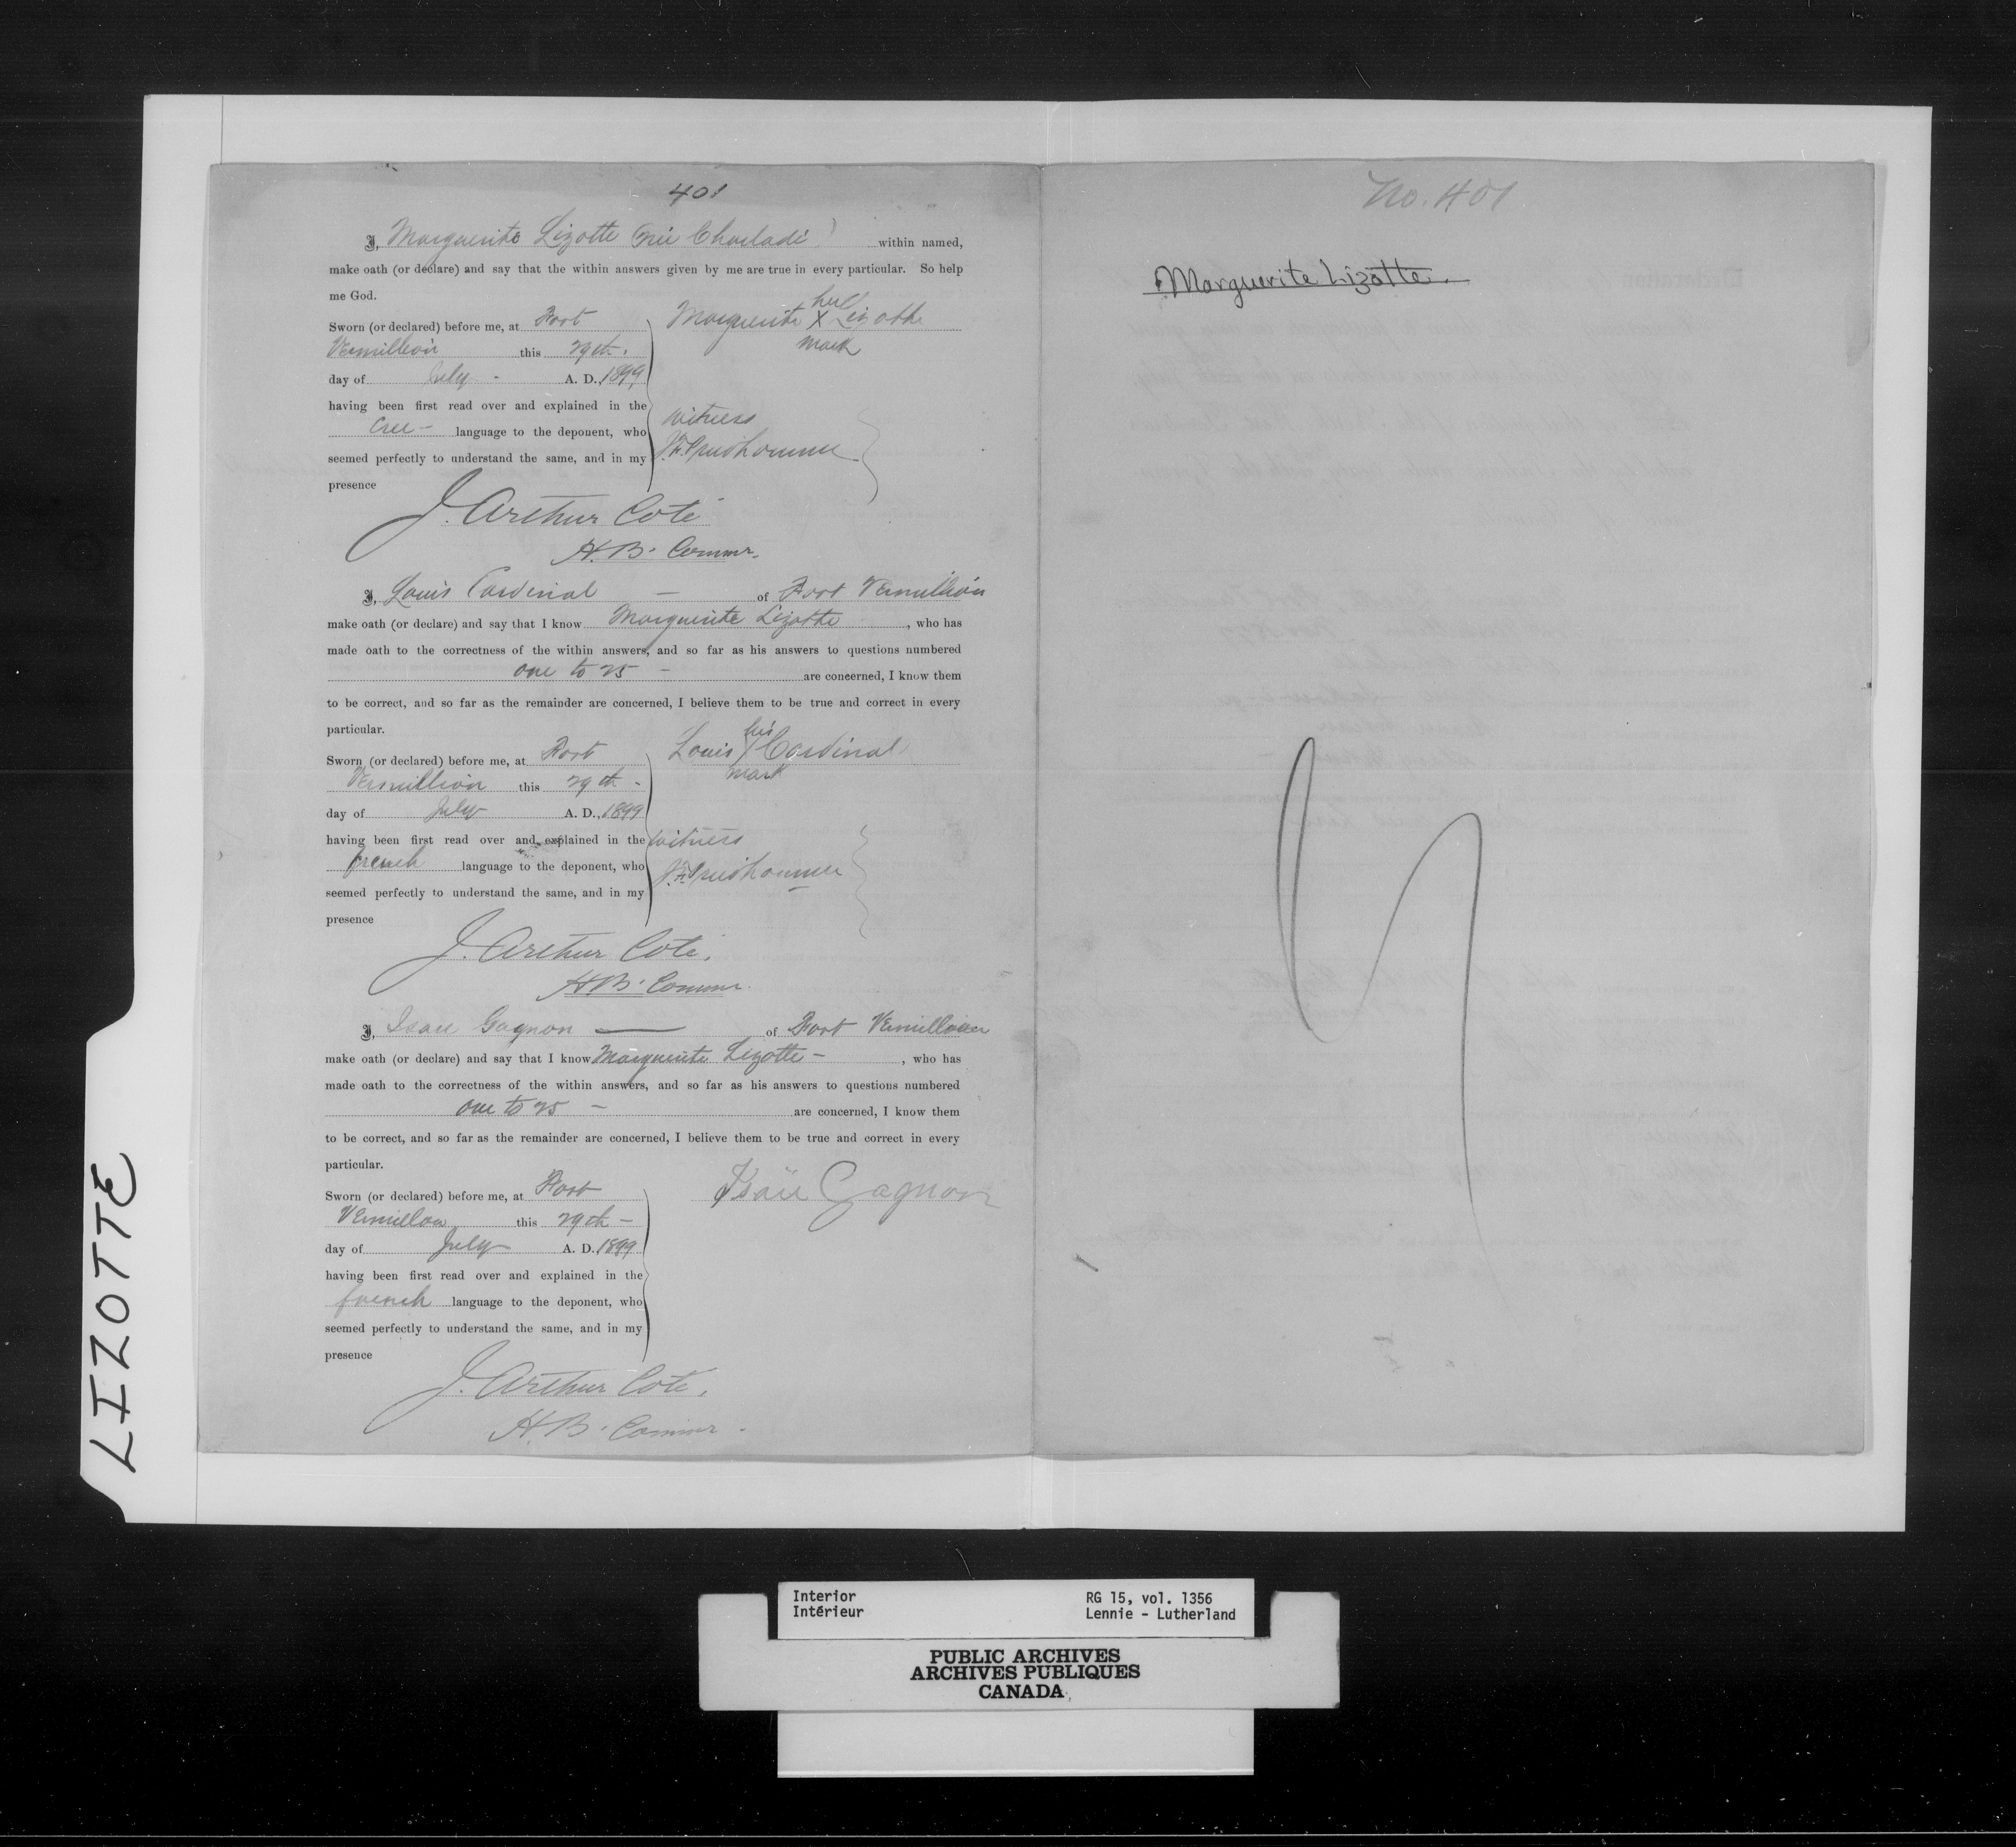 401
I, Marguerite Lizotte (née Charladé) within named,
make oath (or declare) and say that the within answers given by me are true in every particular. So help
me God.
Sworn (or declared) before me, at Fort
Vermillion this 29th.
day of July - A. D., 1899
having been first read over and explained in the
Cree - language to the deponent, who
seemed perfectly to understand the same, and in my
presence
Marguerite X Lizotte
her
mark
Witness
Prudhomme
J. Arthur Coté
H. B. Commr.
I, Louis Cardinal — of Fort Vermillion
make oath (or declare) and say that I know Marguerite Lizotte, who has
made oath to the correctness of the within answers, and so far as his answers to questions numbered
one to 25 - are concerned, I know them
to be correct, and so far as the remainder are concerned, I believe them to be true and correct in every
particular.
Sworn (or declared) before me, at Fort
Vermillion this 29th -
day of July A. D., 1899
having been first read over and explained in the
french language to the deponent, who
seemed perfectly to understand the same, and in my
presence
Louis X Cardinal
his
mark
Witness
Prudhomme
J. Arthur Coté.
H. B. Commr.
I, Isaie Gagnon — of Fort Vermillion
make oath (or declare) and say that I know Marguerite Lizotte -, who has
made oath to the correctness of the within answers, and so far as his answers to questions numbered
one to 25 - are concerned, I know them
to be correct, and so far as the remainder are concerned, I believe them to be true and correct in every
particular.
Sworn (or declared) before me, at Fort
Vermillon this 29th -
day of July A. D. 1899
having been first read over and explained in the
french language to the deponent, who
seemed perfectly to understand the same, and in my
presence
Isaïe Gagnon
J. Arthur Coté.
H. B. Commr -
No. 401
Marguerite Lizotte.
LIZOTTE
Interior
Intérieur
RG 15, vol. 1356
Lennie - Lutherland
PUBLIC ARCHIVES
ARCHIVES PUBLIQUES
CANADA